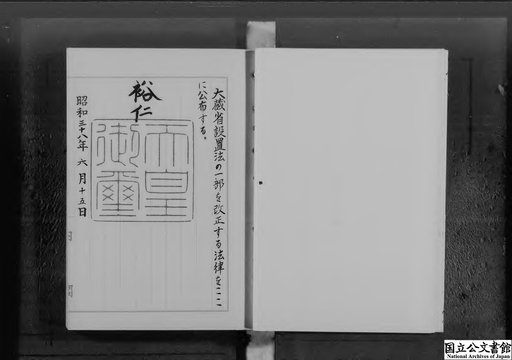 大藏省設置法の一部を改正する法律をここ
に公布する。
裕仁
天皇
御璽
昭和三十八年 六月十五日
国立公文書館
National Archives of Japan